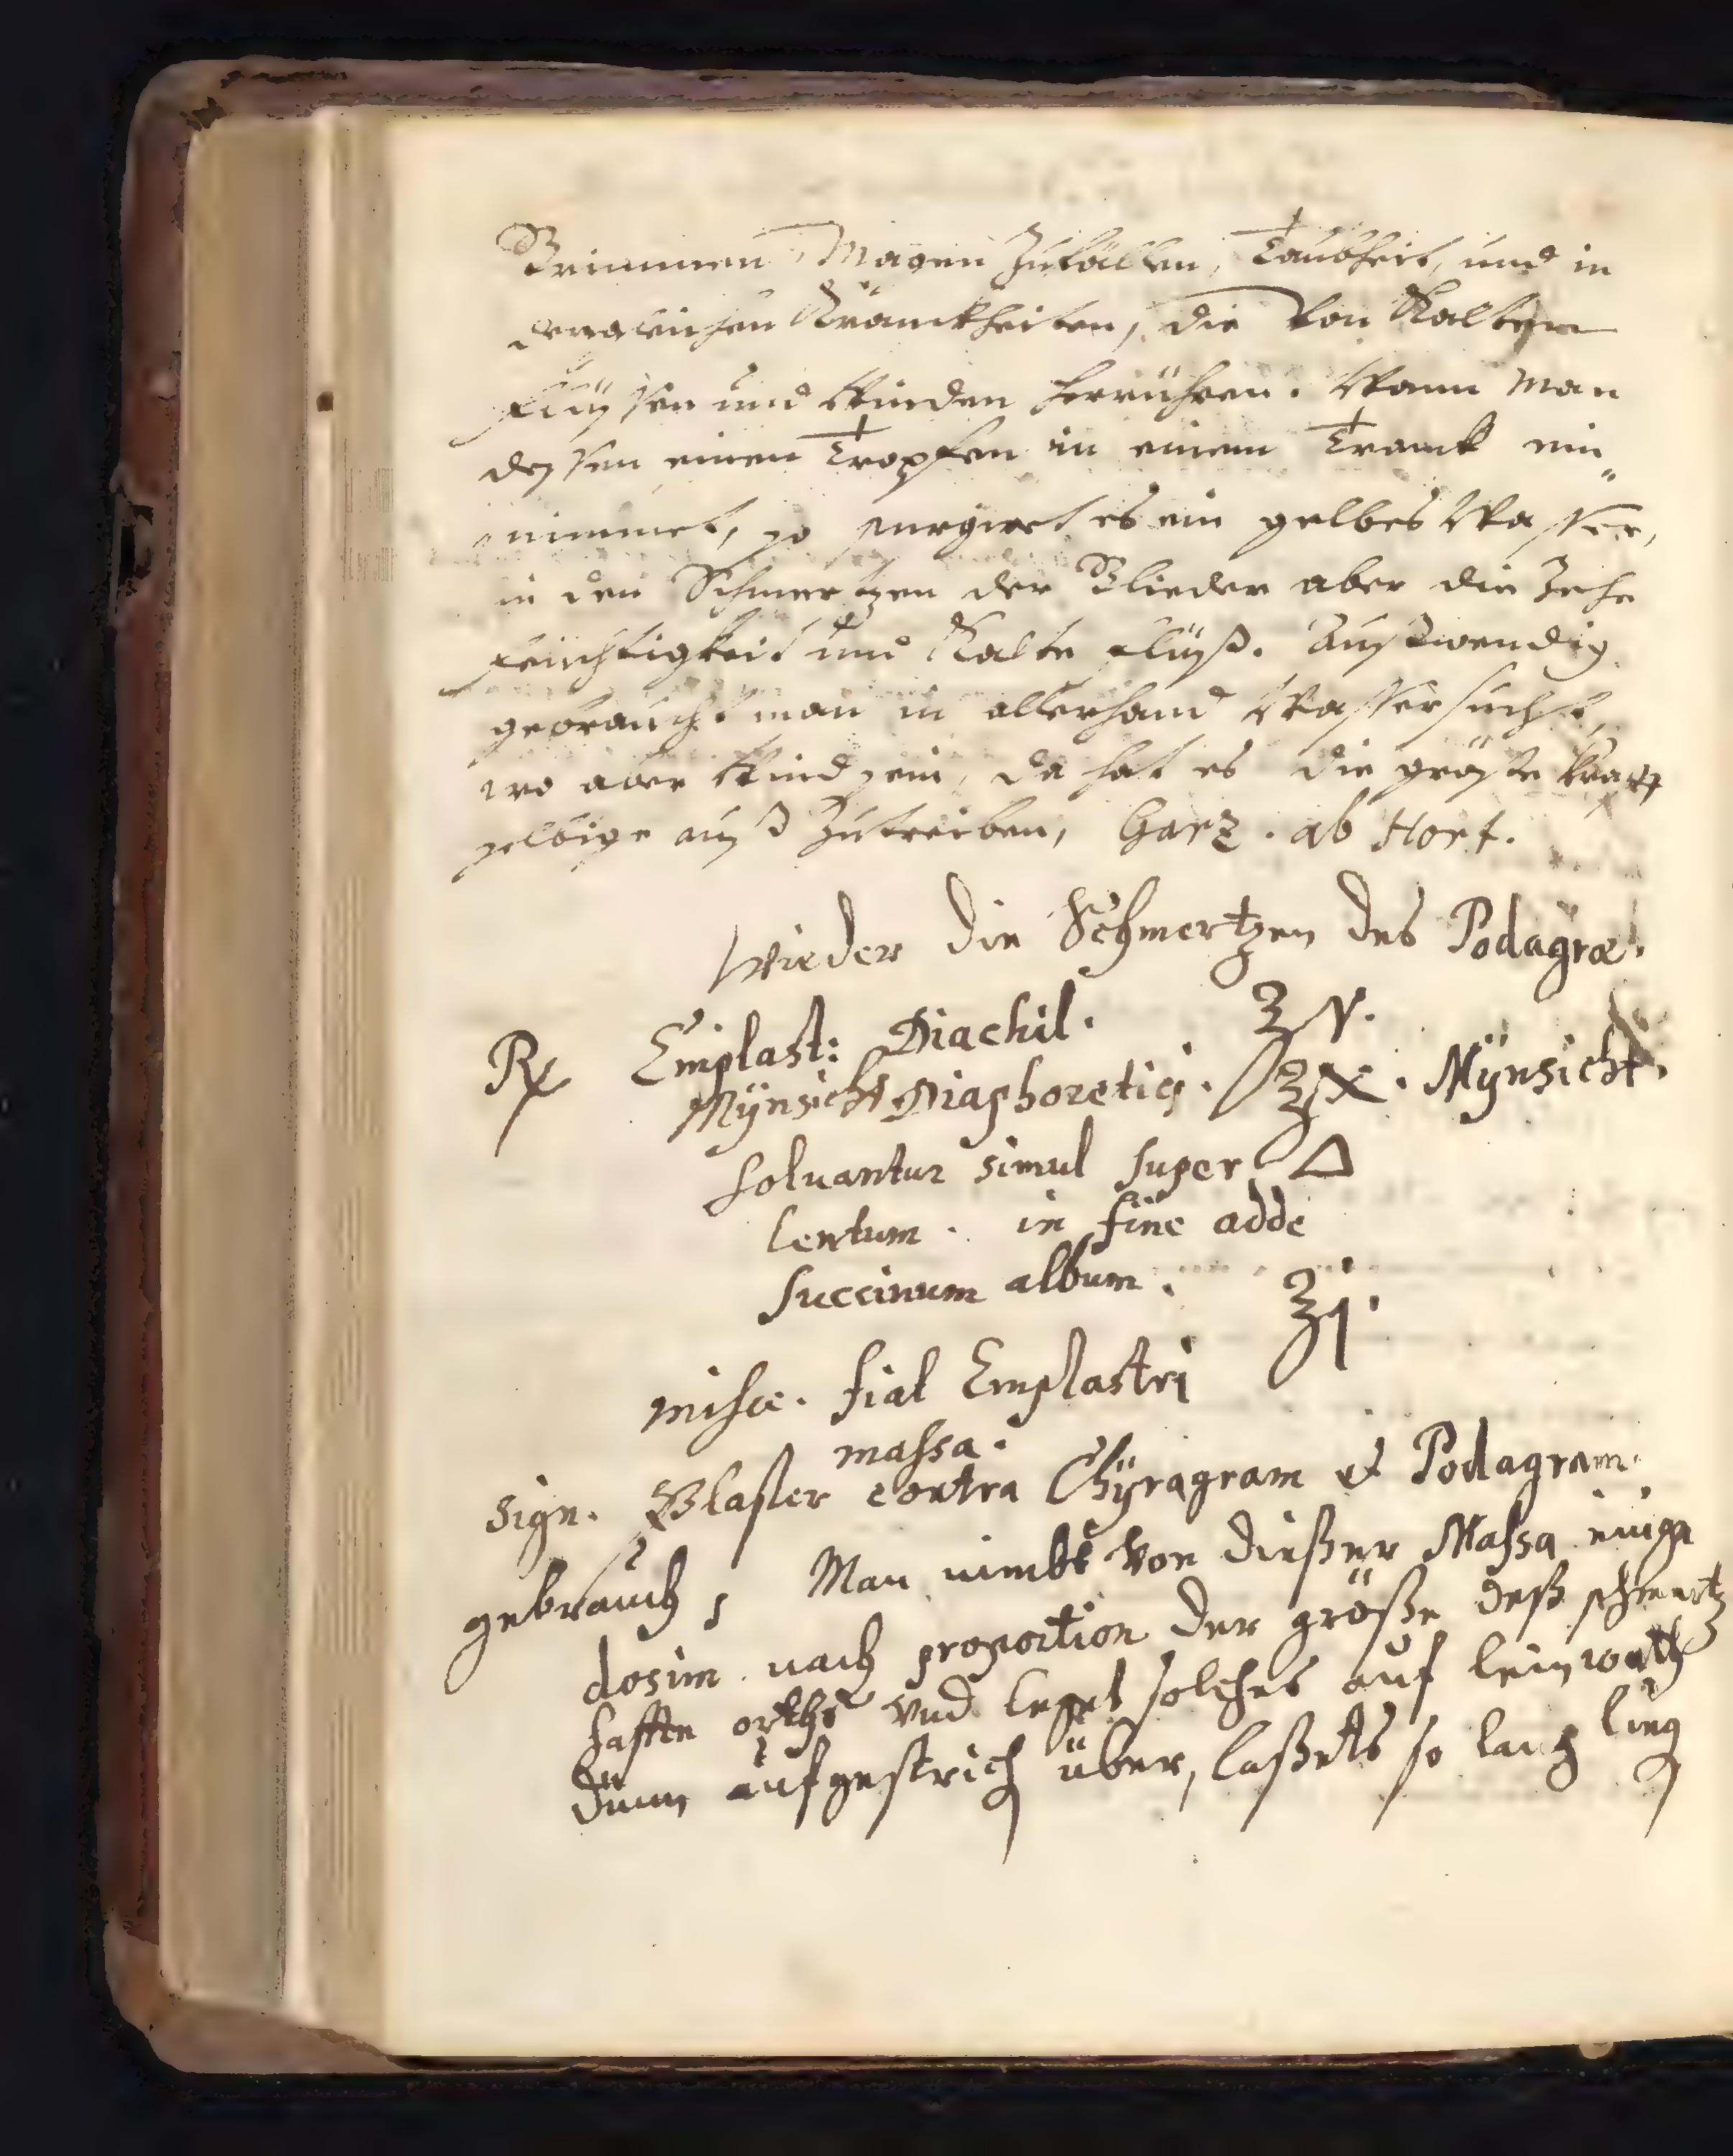 Grimmen, Magen Zufällen, Taubheit, und in
dergleichen Kranckheiten, die von Kalten
Flüssen und Winden herrühren. Wann Man
dessen einen Tropfen in einem Tranck ein„
nimmet, so purgiret es ein gelbes Wasser,
in den Schmertzen der Glieder aber die Zehe
feüchtigkeit und Kalte flüß. Außwendig
gebraucht man in allerhand Wassersucht,
wo aber Wind sein, da hat es die gröste krafft
selbige auß Zutreiben, Garz. ab Hort.
Wieder die Schmertzen des Podagræ.
℞ Emplast: Diachil. ℥v.
Mÿnsicht Diaphoretici. ℥x. Mÿnsicht.
solvantur simul super △
lentum. in fine adde
succinum album. ℥j.
misce. fiat Emplastri
massa.
Sign. Plaster contra Chÿragram et Podagram.
gebrauch, Man nimbt von dießer Massa einige
dosim nach proportion der größe deß schmertz
hafften orths vnd legt solches auf leinwath
dünn aufgestrich über, laßets so lang lieg